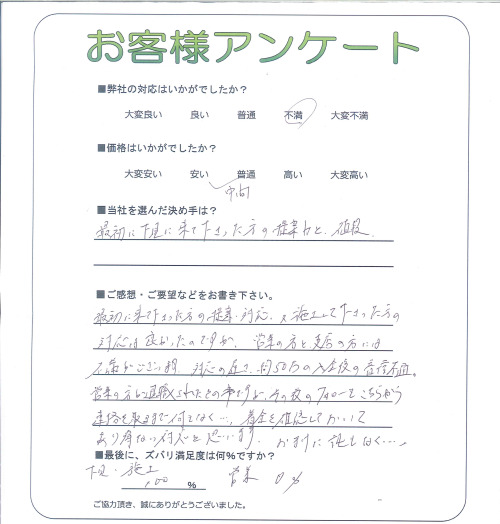 お客様アンケート
■弊社の対応はいかがでしたか？
大変良い 良い 普通 不満 大変不満
■価格はいかがでしたか？
大変安い 安い 普通 高い 大変高い
中間
■当社を選んだ決め手は？
最初に下見に来て下さった方の提案力と、値段
■ご感想・ご要望などをお書き下さい。
最初に来て下さった方の提案、対応、又施工して下さった方の
対応は良かったのですが、営業の方と支店の方には
不満がございます 対応の
営業の方も退職されたとの事ですが、その後のフォローもこちらから
連絡を取るまで何もなく…、
あり得ない 思います。
■最後に、ズバリ満足度は何％ですか？
下見・施工 100 % 営業 0 %
ご協力頂き、誠にありがとうございました。